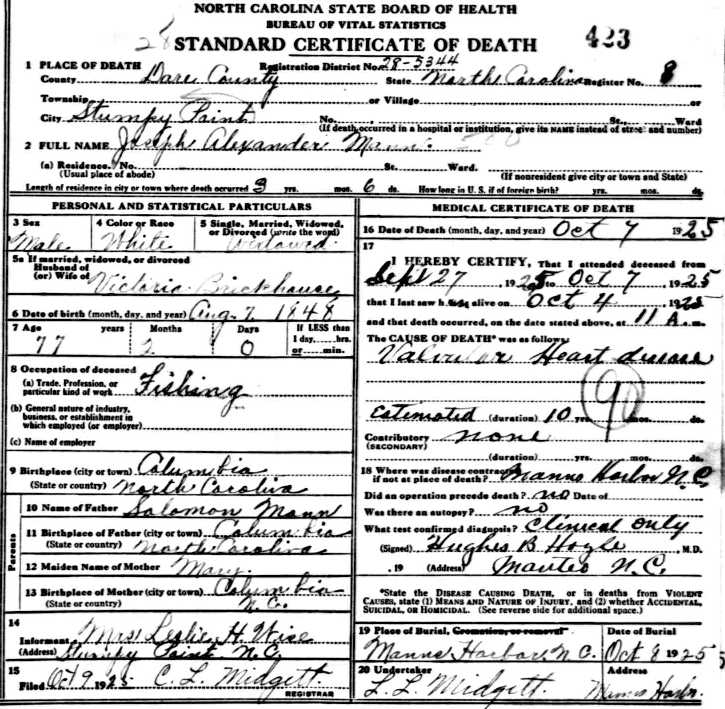 NORTH CAROLINA STATE BOARD OF HEALTH
BUREAU OF VITAL STATISTICS
28 STANDARD CERTIFICATE OF DEATH 423
1 PLACE OF DEATH Registration District No. 28-5344
County Dare County State North Carolina Register No. 8
Township or Village or
City Stumpy Point No. St., Ward
(If death occurred in a hospital or institution, give its NAME instead of street and number)
2 FULL NAME Joseph Alexander Mann
(a) Residence. No. St. Ward.
(Usual place of abode) (If nonresident give city or town and State)
Length of residence in city or town where death occurred 3 yrs. mos. 6 ds. How long in U. S. if of foreign birth? yrs. mos. ds.
PERSONAL AND STATISTICAL PARTICULARS
3 Sex 4 Color or Race 5 Single, Married, Widowed, or Divorced (write the word)
Male White Widowed
5a If married, widowed, or divorced
Husband of
(or) Wife of Victoria Brickhouse
6 Date of birth (month, day, and year) Aug. 7 1848
7 Age years Months Days If LESS than 1 day, hrs. or min.
77 2 0
8 Occupation of deceased
(a) Trade, Profession, or particular kind of work Fishing
(b) General nature of industry, business, or establishment in which employed (or employer)
(c) Name of employer
9 Birthplace (city or town) Columbia
(State or country) North Carolina
Parents
10 Name of Father Solomon Mann
11 Birthplace of Father (city or town) Columbia
(State or country) North Carolina
12 Maiden Name of Mother Mary
13 Birthplace of Mother (city or town) Columbia
(State or country) N.C.
14
Informant Mrs. Leslie H. Wise
(Address) Stumpy Point N.C.
15
Filed Oct 9 1925 C. L. Midgett
REGISTRAR
MEDICAL CERTIFICATE OF DEATH
16 Date of Death (month, day, and year) Oct 7 1925
17
I HEREBY CERTIFY, That I attended deceased from
Sept 27, 1925 to Oct 7, 1925
that I last saw h alive on Oct 4, 1925
and that death occurred, on the date stated above, at 11 A. m.
The CAUSE OF DEATH* was as follows:
Valvular Heart disease
90
Estimated (duration) 10 yrs. mos. ds.
Contributory none
(SECONDARY)
(duration) yrs. mos. ds.
18 Where was disease contracted
if not at place of death? Manns Harbor N.C.
Did an operation precede death? no Date of
Was there an autopsy? no
What test confirmed diagnosis? Clinical only
(Signed) Hughes B Hogle M.D.
, 19 (Address) Manteo N.C.
*State the DISEASE CAUSING DEATH, or in deaths from VIOLENT
CAUSES, state (1) MEANS AND NATURE OF INJURY, and (2) whether ACCIDENTAL,
SUICIDAL, or HOMICIDAL. (See reverse side for additional space.)
19 Place of Burial, Cremation, or removal Date of Burial
Manns Harbor N.C. Oct 8 1925
20 Undertaker Address
L. L. Midgett Manns Harbor